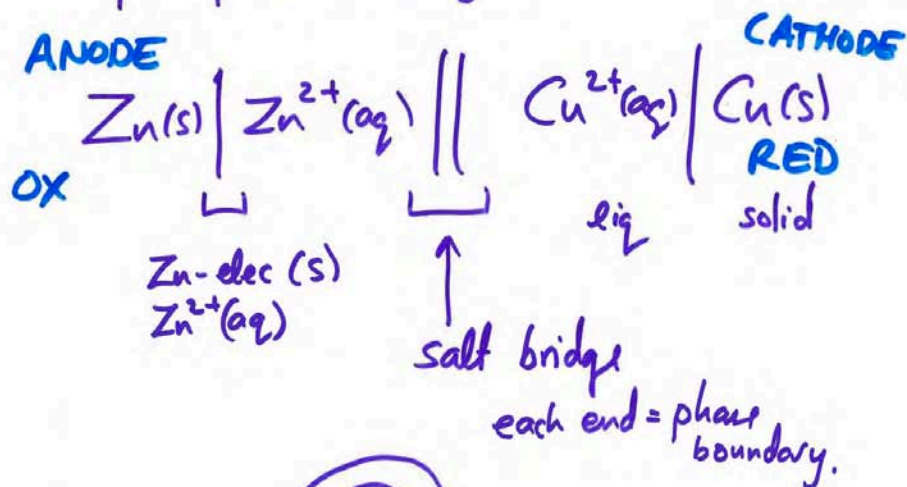 ANODE
CATHODE
Zn(s) | Zn²⁺(aq) || Cu²⁺(aq) | Cu(s)
OX
RED
liq solid
Zn-elec (s)
Zn²⁺(aq)
salt bridge
each end = phase
boundary.